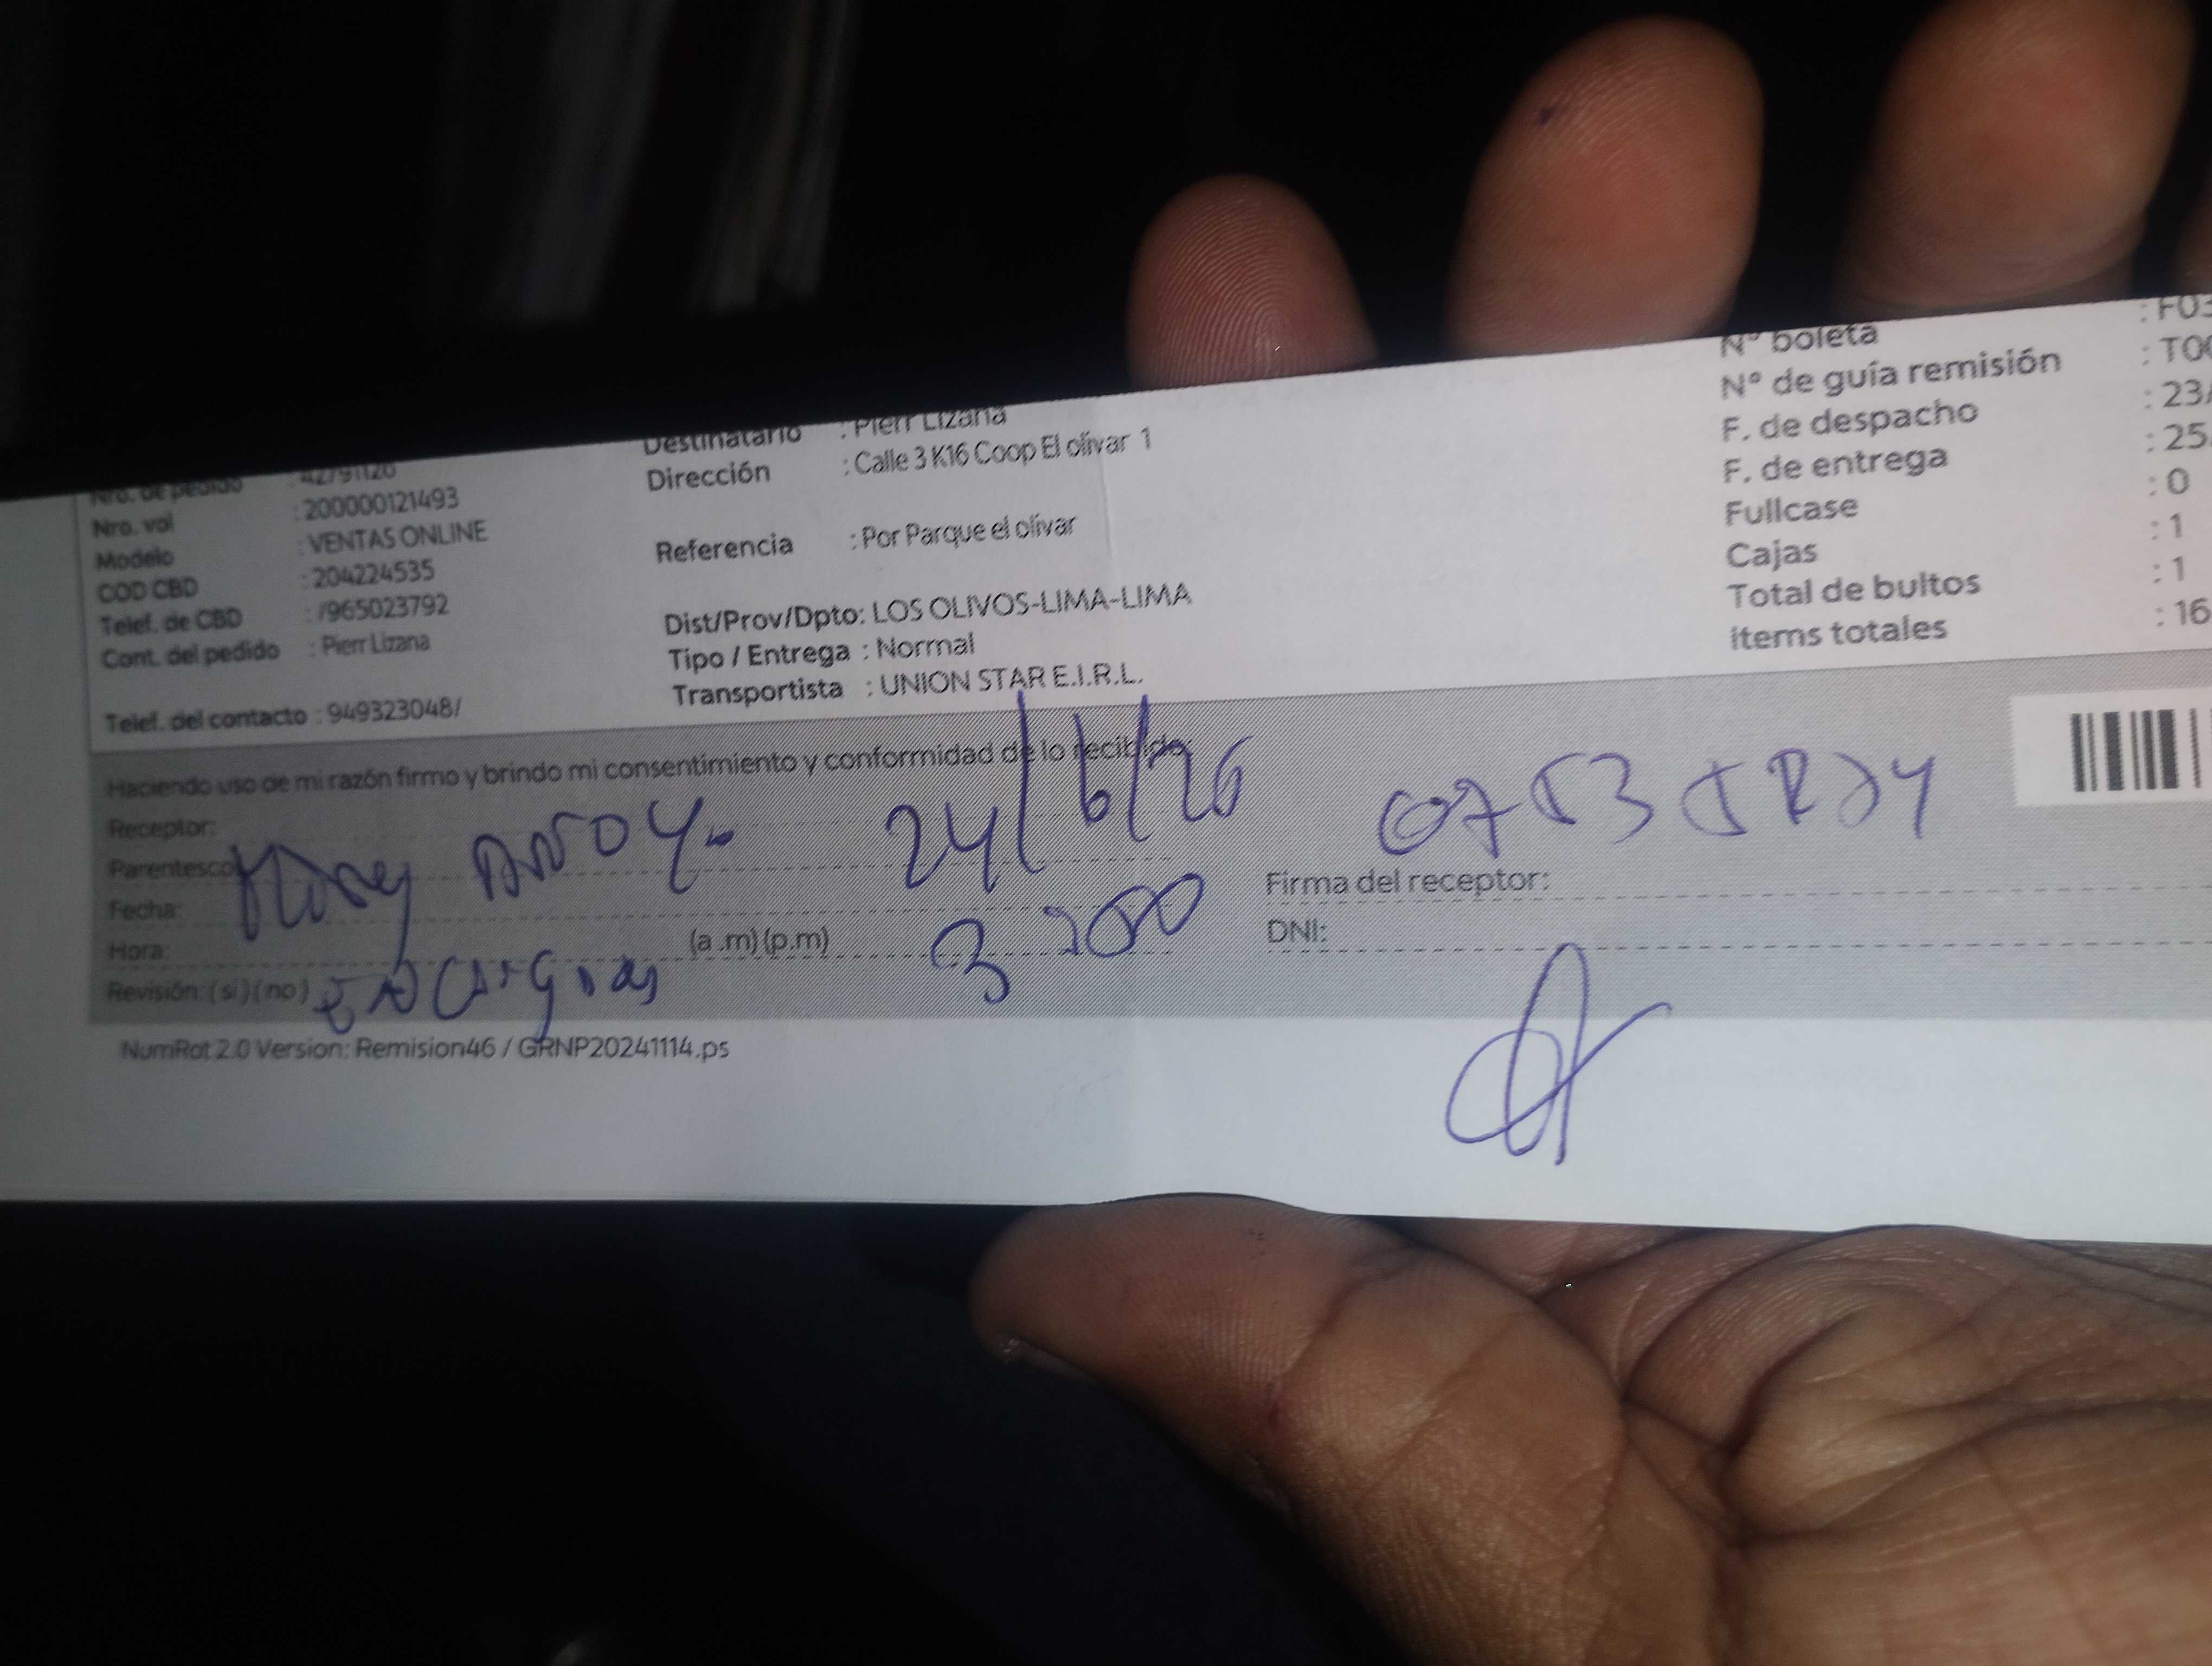 Nro. de pedido : 42791120
Nro. vol : 200000121493
Modelo : VENTAS ONLINE
COD CBD : 204224535
Telef. de CBD : /965023792
Cont. del pedido : Pierr Lizana
Telef. del contacto : 949323048/
Destinatario : Pierr Lizana
Dirección : Calle 3 K16 Coop El olivar 1
Referencia : Por Parque el olivar
Dist/Prov/Dpto: LOS OLIVOS-LIMA-LIMA
Tipo / Entrega : Normal
Transportista : UNION STAR E.I.R.L.
N° boleta : F03
N° de guía remisión : T00
F. de despacho : 23/
F. de entrega : 25
Fullcase : 0
Cajas : 1
Total de bultos : 1
items totales : 16
Haciendo uso de mi razón firmo y brindo mi consentimiento y conformidad de lo recibido:
Receptor:
Parentesco
Fecha: 24/6/26
Hora: (a.m)(p.m)
Revisión: (si)(no)
Firma del receptor:
DNI:
NumRot 2.0 Version: Remision46 / GRNP20241114.ps